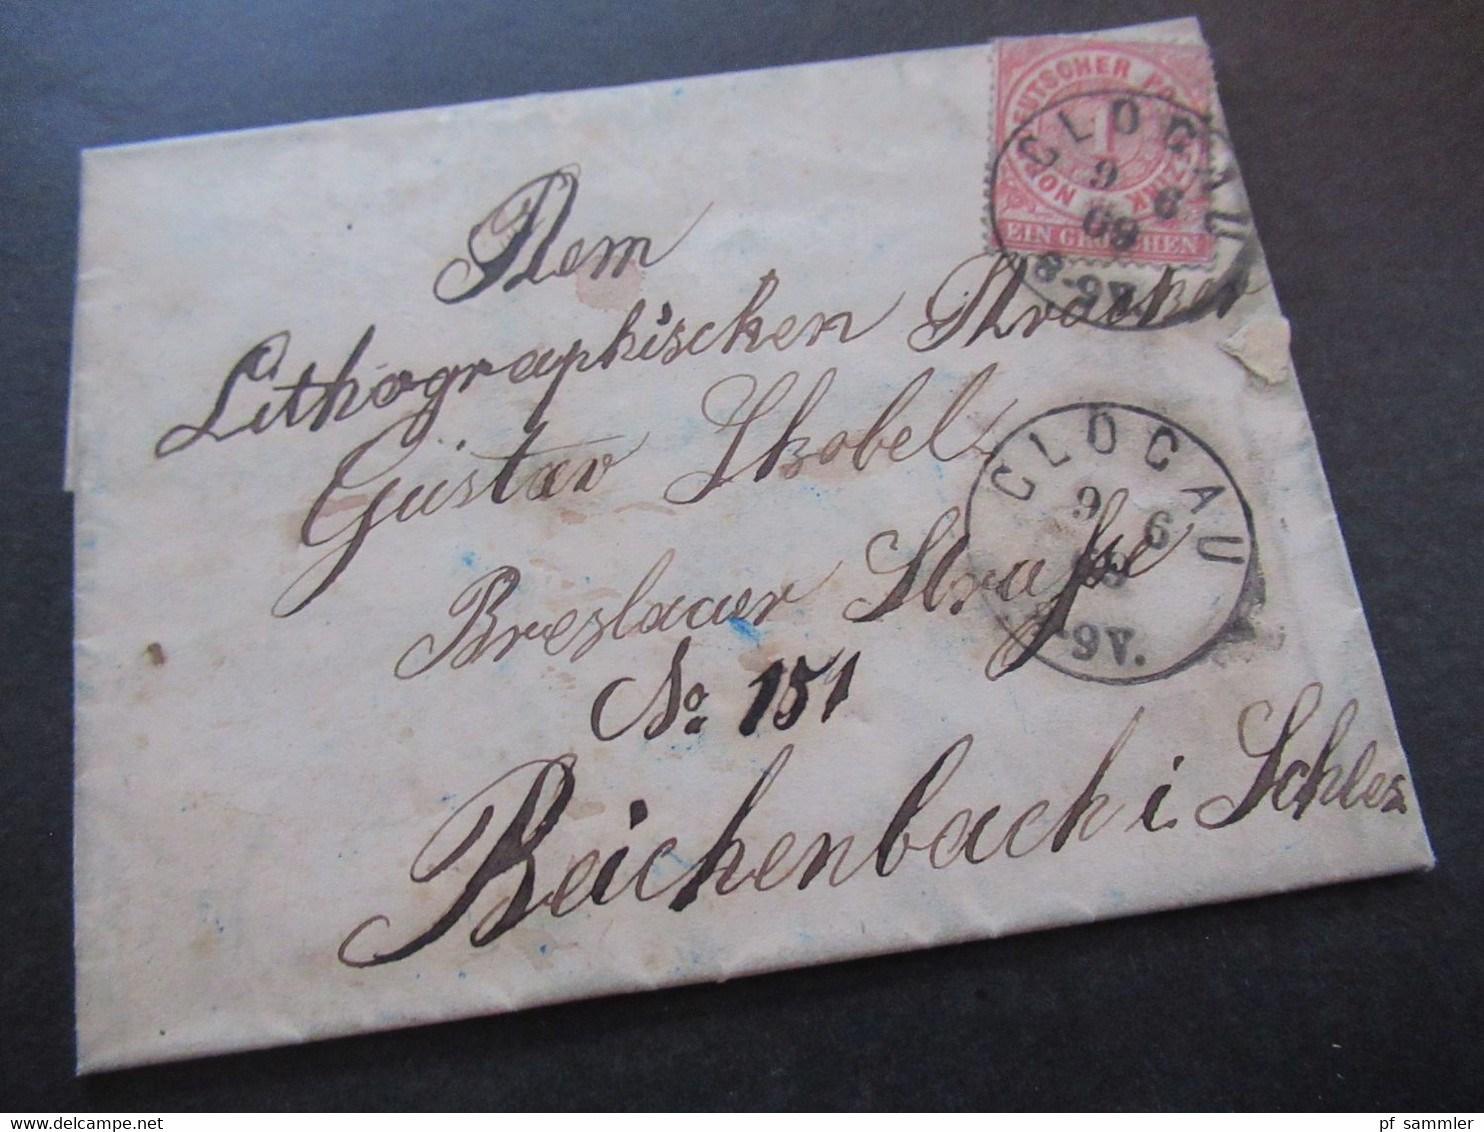 NORDDEUTSCHER POSTBEZIRK
1
EIN GROSCHEN
GLOGAU
9 6
69
8-9V.
Dem
Lithographischen Drucker
Gustav Skobel
Breslauer Straße
No 151
Reichenbach i Schles
GLOGAU
9 6
69
8-9V.
www.delcampe.net
pf sammler